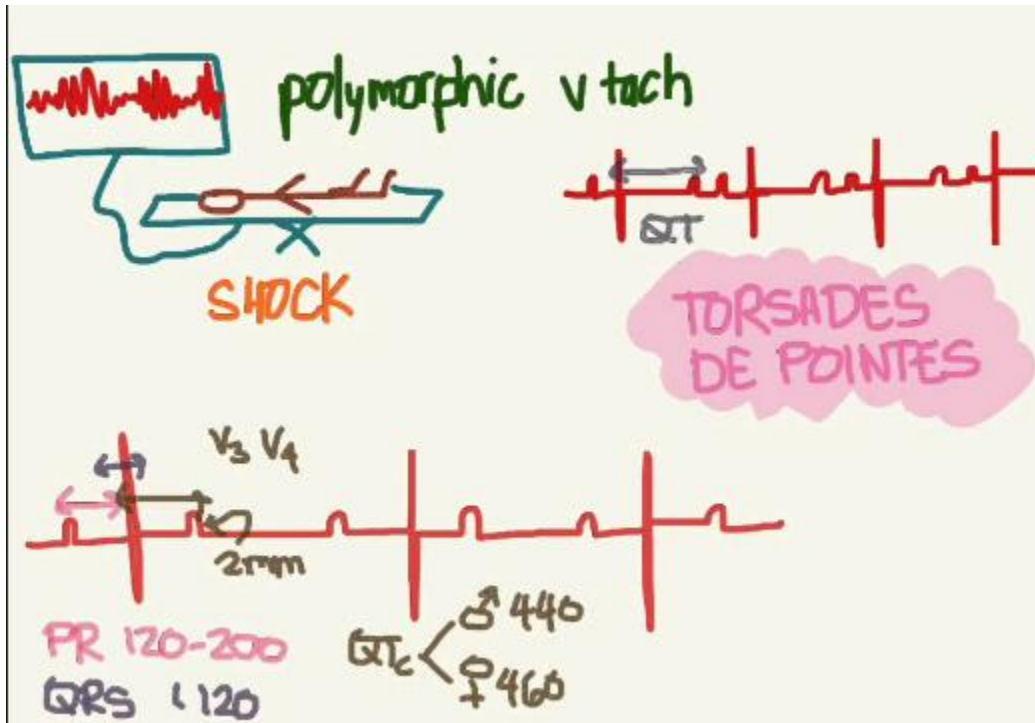 polymorphic v tach
SHOCK
QT
TORSADES
DE POINTES
V3 V4
2mm
PR 120-200
QRS < 120
QTc
♂ 440
♀ 460